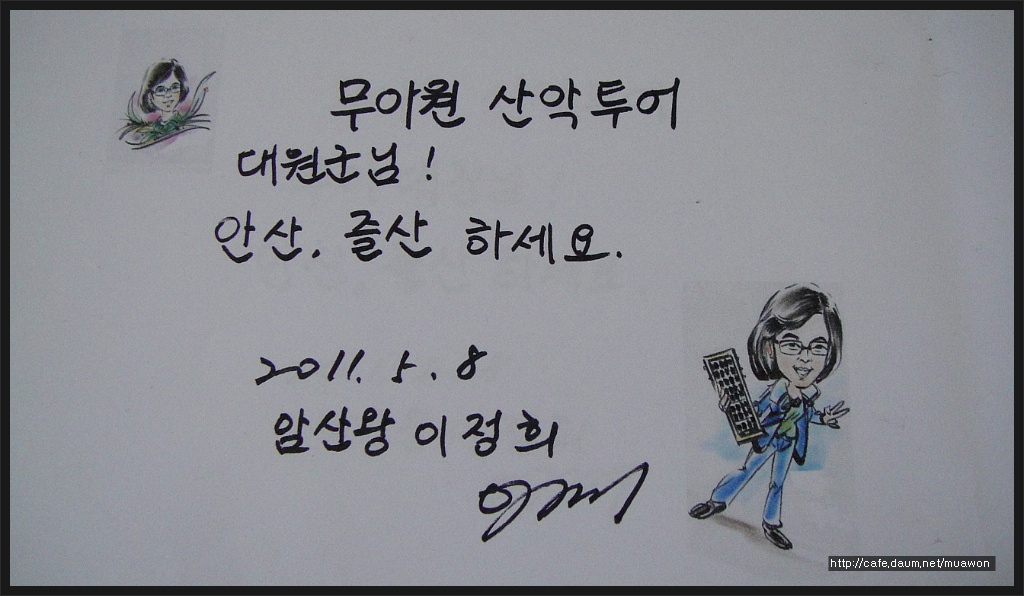 무아원 산악투어
대원군님!
안산, 즐산 하세요.
2011. 5. 8
암산왕 이정희
http://cafe.daum.net/muawon